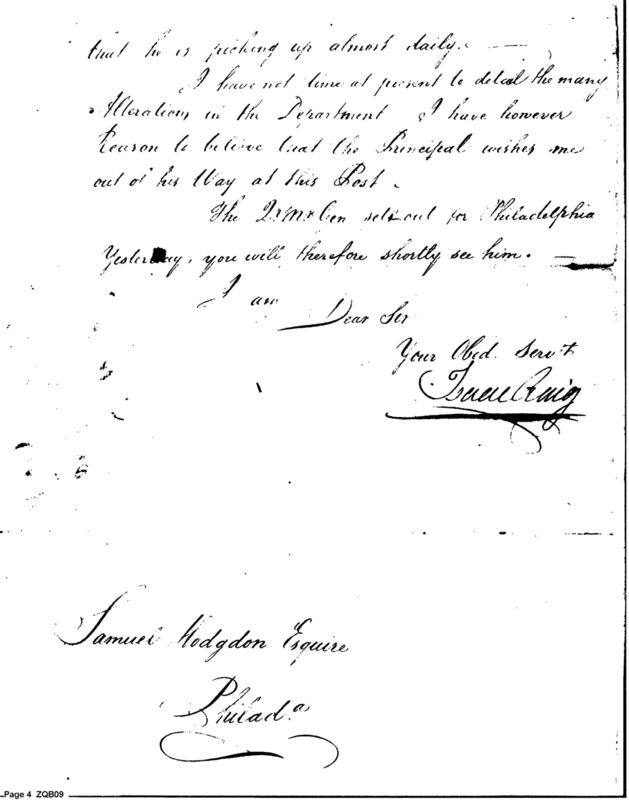 that he is picking up almost daily. —
I have not time at present to detail the many
Alterations in the Department I have however
Reason to believe that the Principal wishes me
out of his Way at this Post.
The Qr Mr Gen set out for Philadelphia
Yesterday, you will therefore shortly see him. —
I am
Dear Sir
Your Obed. Servt
Isaac Craig
Samuel Hodgdon Esquire
Philada
Page 4 ZQB09